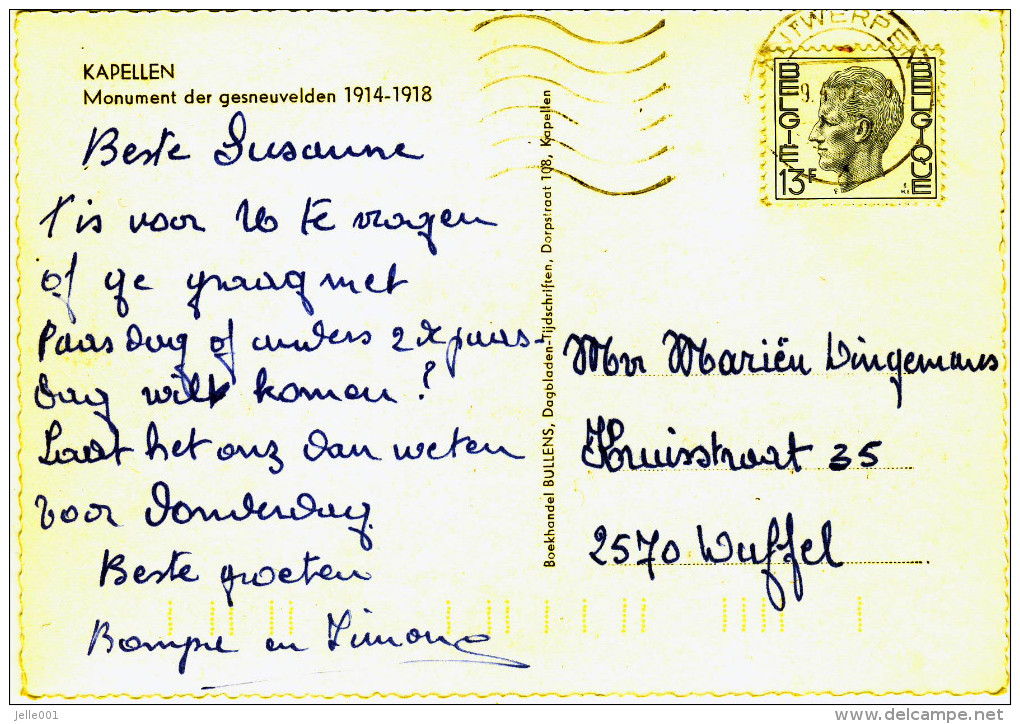 KAPELLEN
Monument der gesneuvelden 1914-1918
Beste Susanne
't is voor U te vragen
of ge graag met
Paasdag of anders 2de paas-
dag wilt komen?
Laat het onz dan weten
voor donderdag.
Beste groeten
Bompa en Simonne
Boekhandel BULLENS, Dagbladen-Tijdschriften, Dorpstraat 108, Kapellen
ANTWERPEN
9.
BELGIE
BELGIQUE
13F
Mvr Mariën Dingemans
Kruisstraat 35
2570 Duffel
jelle001
delcampe.net